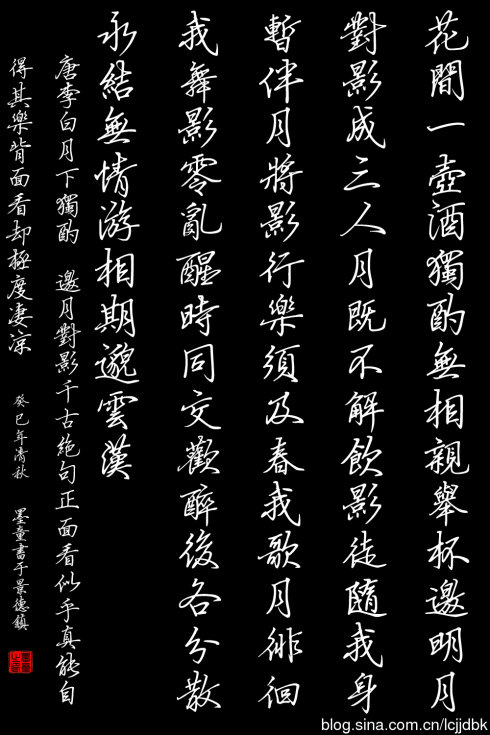 花間一壺酒獨酌無相親舉杯邀明月
對影成三人月既不解飲影徒隨我身
暫伴月將影行樂須及春我歌月徘徊
我舞影零亂醒時同交歡醉後各分散
永結無情游相期邈雲漢
唐李白月下獨酌 邀月對影千古絕句正面看似乎真能自
得其樂背面看却極度凄涼 癸巳年清秋 墨童書于景德鎮
blog.sina.com.cn/lcjjdbk